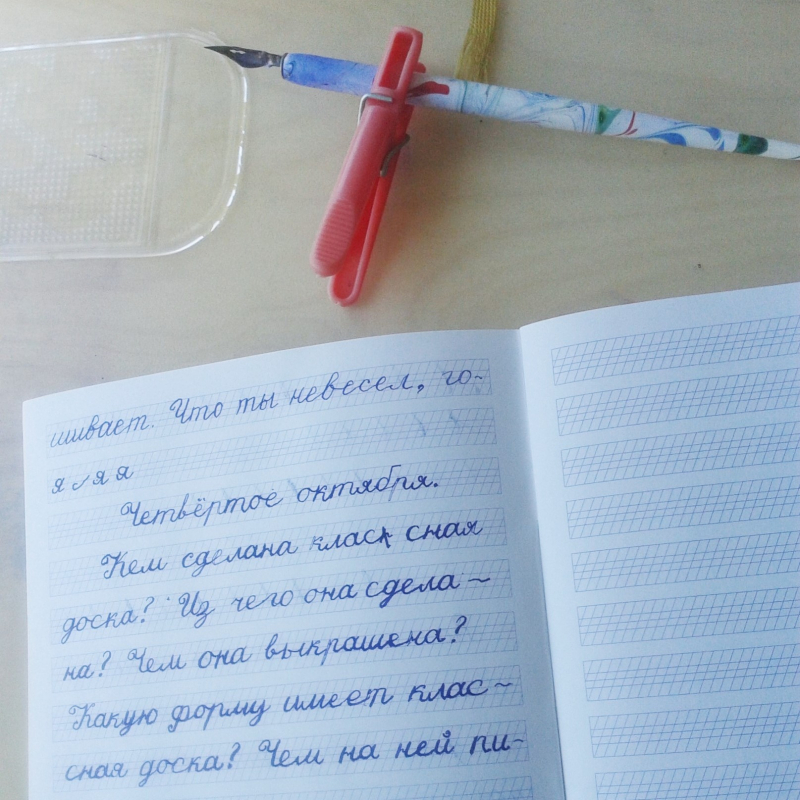 шивает. Что ты невесел, го~
я ~ я я
Четвёртое октября.
Кем сделана класк сная
доска? Из чего она сдела~
на? Чем она выкрашена?
Какую форму имеет клас~
сная доска? Чем на ней пи~